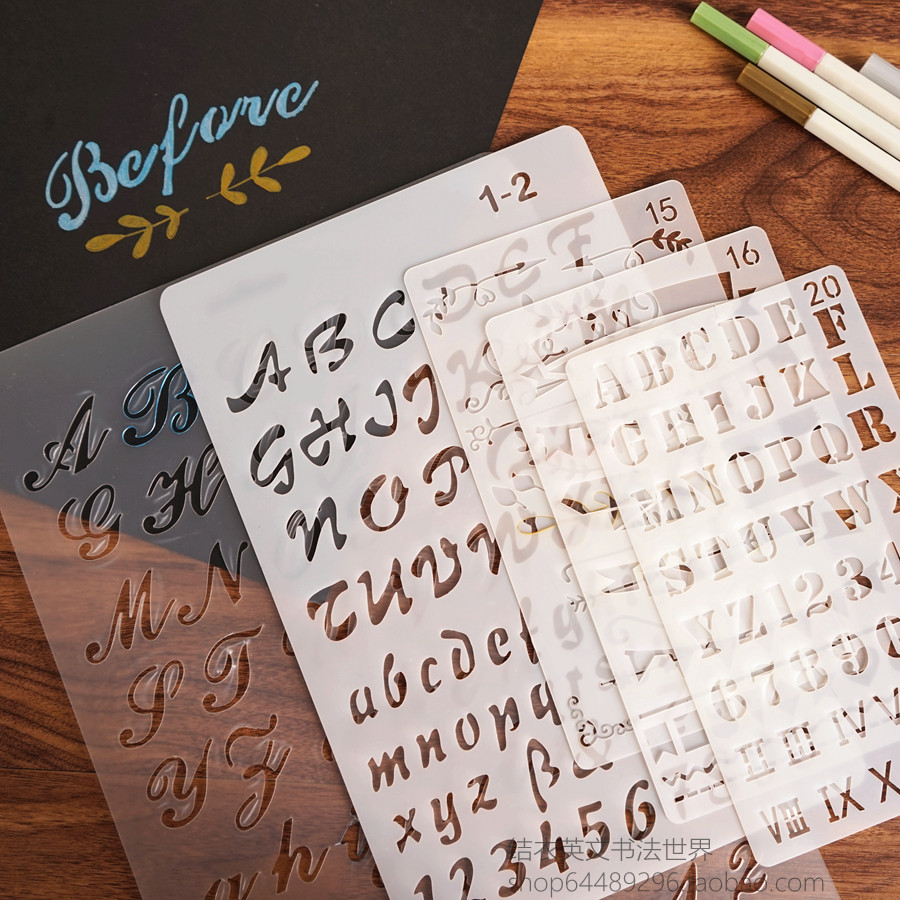 Before
1-2
15
16
20
A B
G H
M N
S T
Y Z
a h i
A B C
G H I J
N O P
T U V W
a b c d e f
m n o p q
x y z ß
1 2 3 4 5 6
D E F
A B C D E F
G H I J K L
M N O P Q R
S T U V W X
Y Z 1 2 3 4
6 7 8 9 0
II III IV V
VIII IX X
结衣英文书法世界
shop64489296.taobao.com